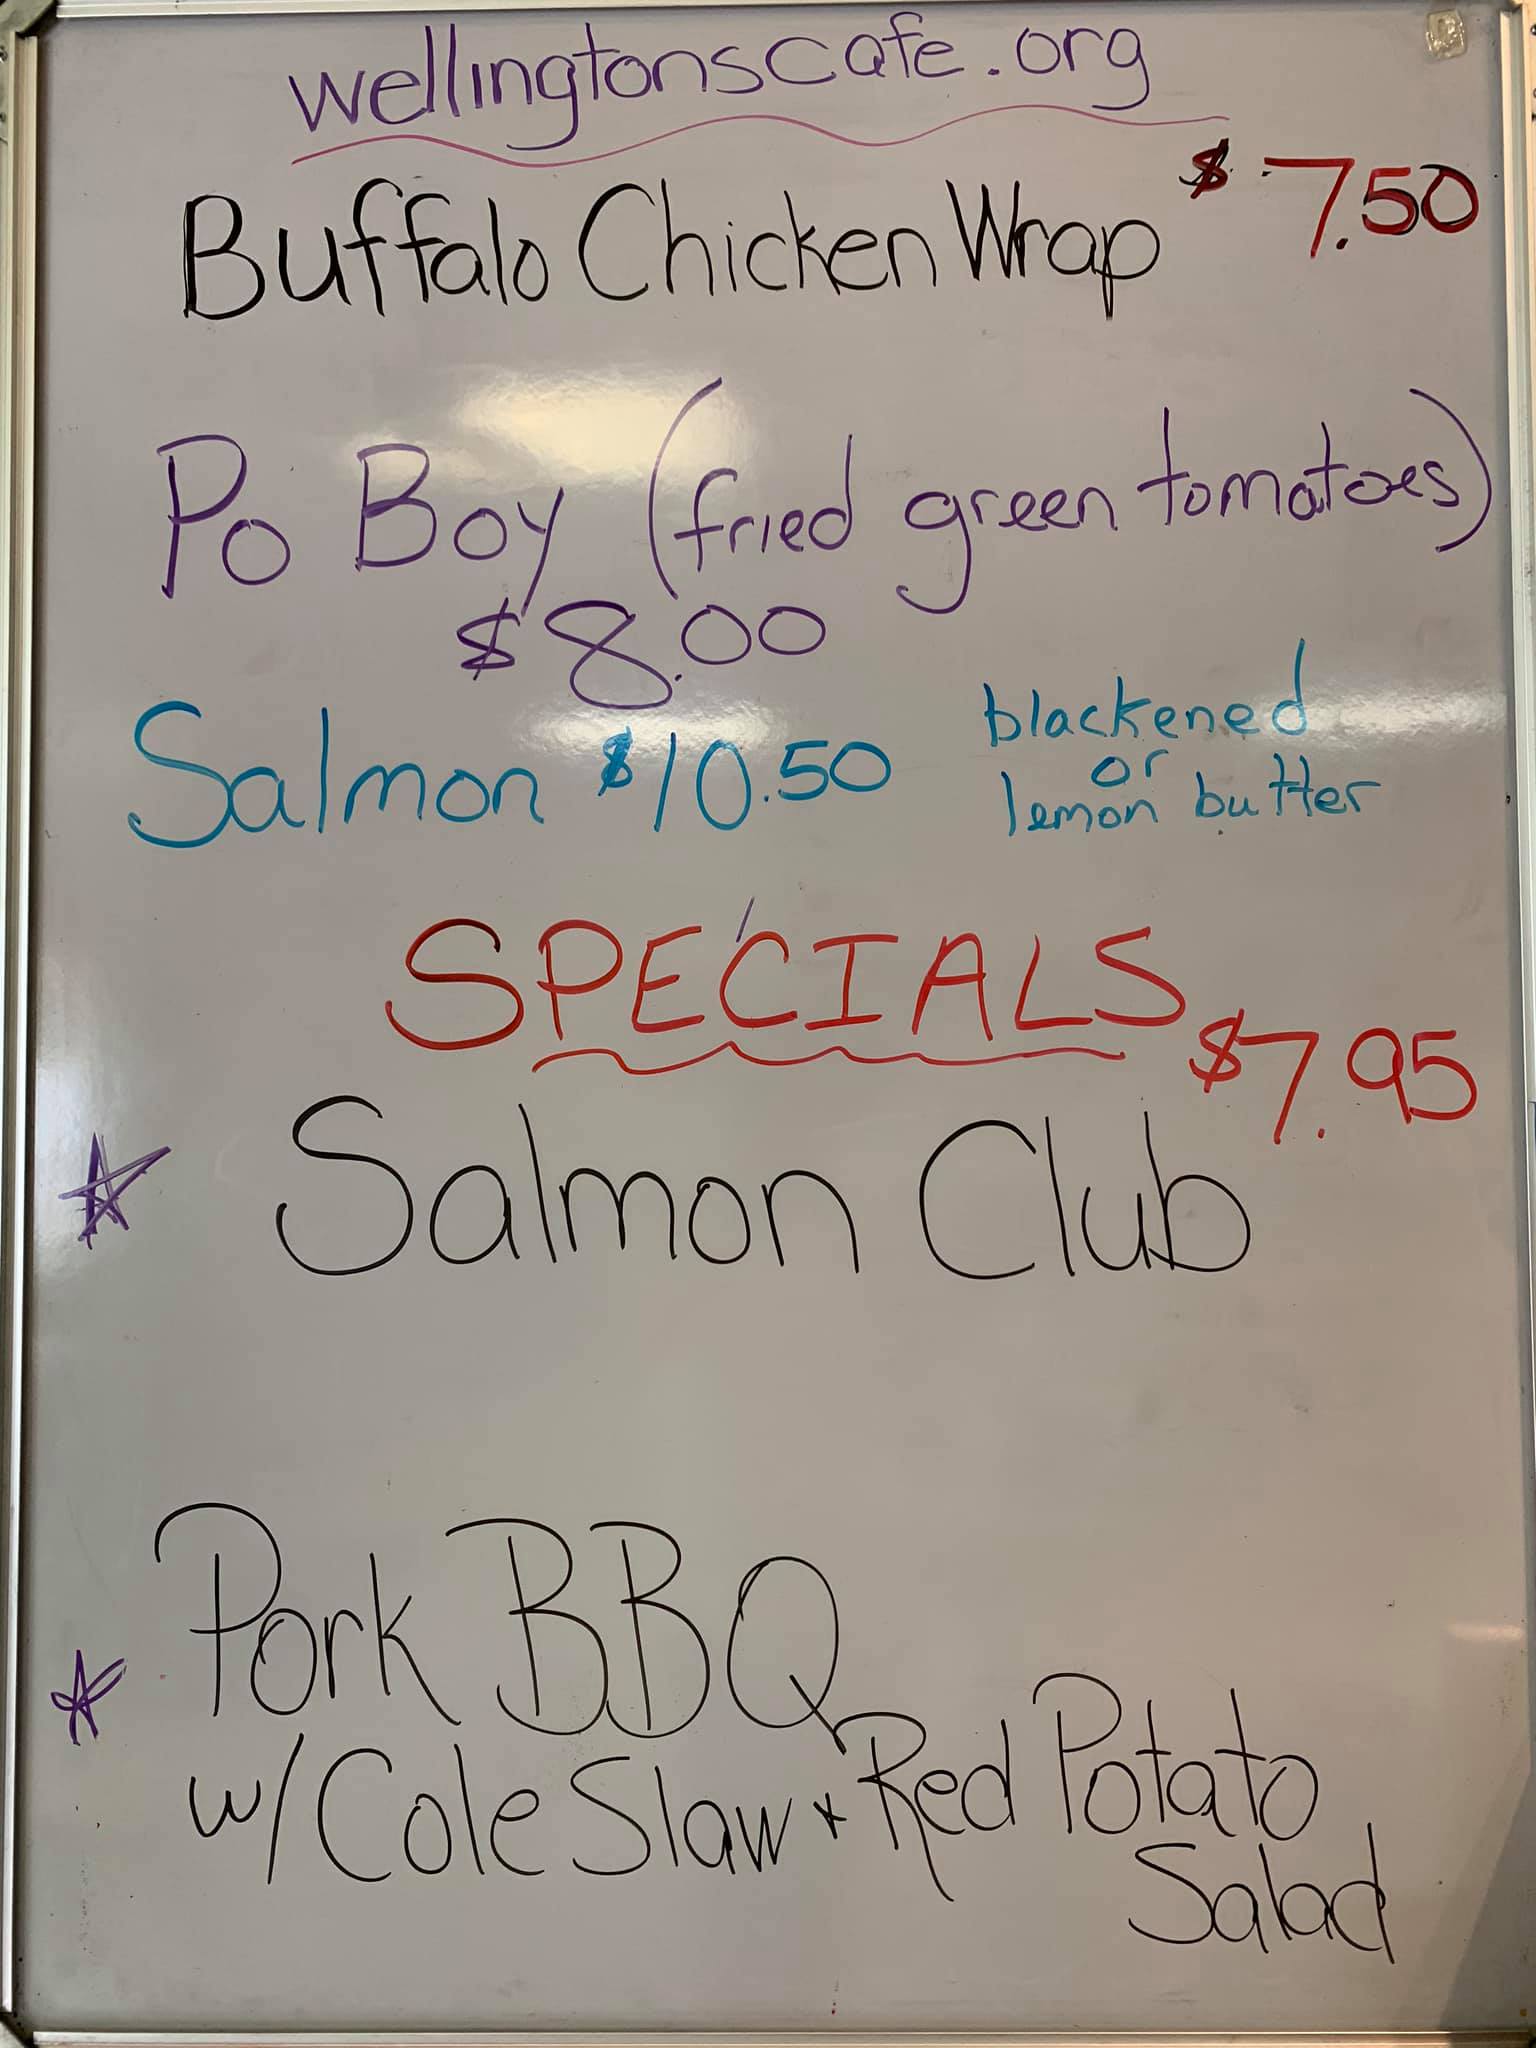 wellingtonscafe.org
Buffalo Chicken Wrap $7.50
Po Boy (fried green tomatoes)
$8.00
Salmon $10.50 blackened
or
lemon butter
SPECIALS
$7.95
Salmon Club
Pork BBQ
w/ Cole Slaw & Red Potato
Salad